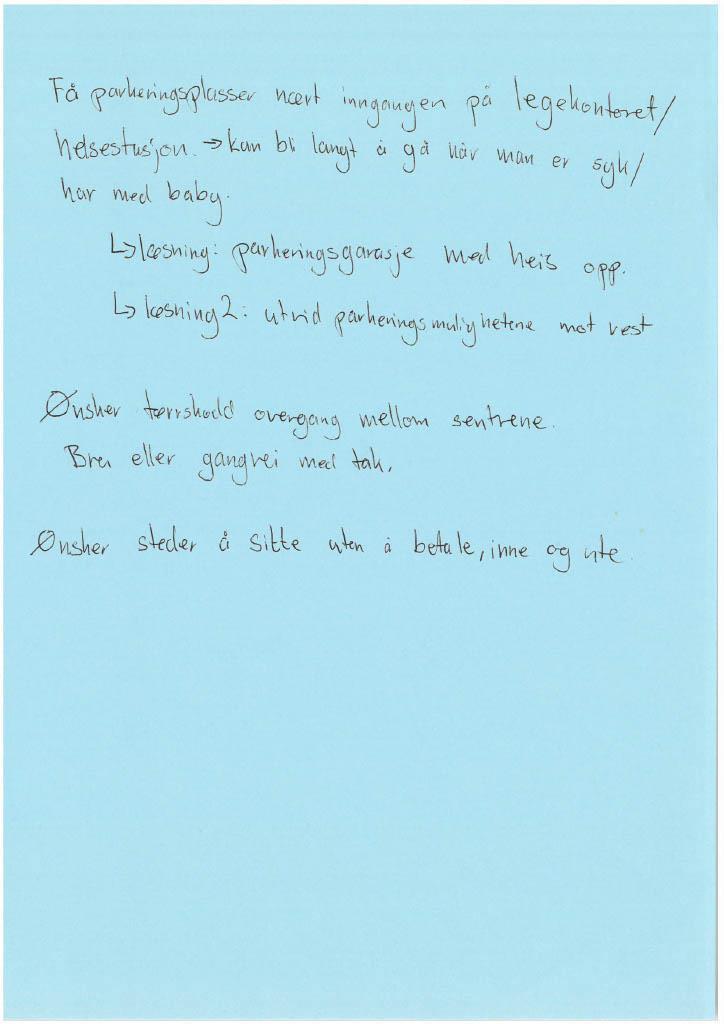 Få parkeringsplasser nært inngangen på legekontoret/
helsestasjon. → kan bli langt å gå når man er syk/
har med baby.
↳ løsning: parkeringsgarasje med heis opp.
↳ løsning 2: utvid parkeringsmulighetene mot vest
Ønsker tørrskodd overgang mellom sentrene.
Bru eller gangvei med tak.
Ønsker steder å sitte uten å betale, inne og ute.